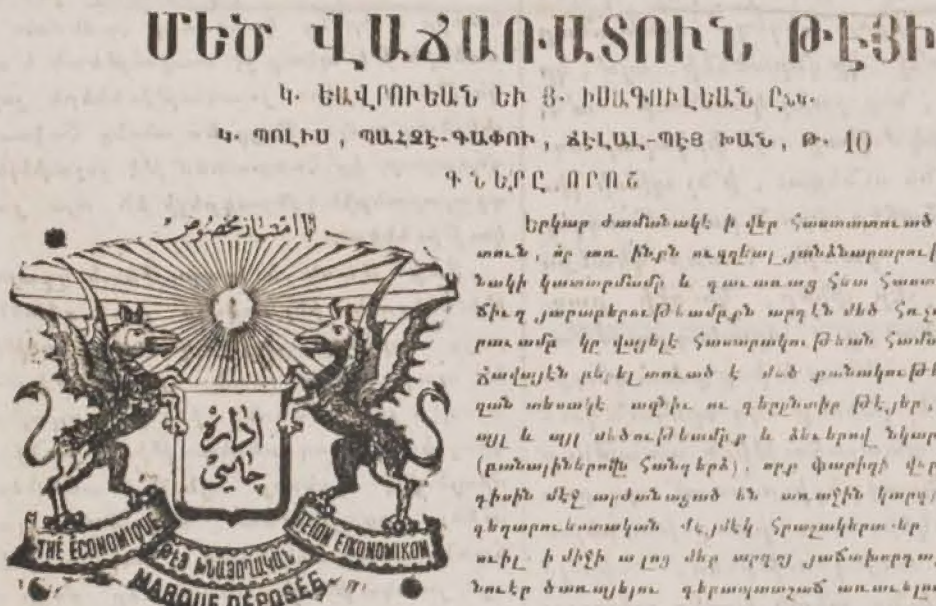 ՄԵԾ ՎԱՃԱՌԱՏՈՒՆ ԹԷՅԻ
Կ. ԵԱՎՐՈՒԵԱՆ ԵՒ Յ. ԻՍԱԳՈՒԼԵԱՆ Ընկ.
Կ. ՊՈԼԻՍ, ՊԱՀՋԷ-ԳԱՓՈՒ, ՃԷԼԱԼ-ՊԷՅ ԽԱՆ, Թ. 10
ԳՆԵՐԸ ՈՐՈՇ
با امتياز مخصوص
اداره
چايى
THÉ ÉCONOMIQUE
ԹԷՅ ԽՆԱՅՈՂԱԿԱՆ
ΤΕΙΟΝ ΕΙΚΟΝΟΜΙΚΟΝ
MARQUE DÉPOSÉE
Երկար ժամանակէ ի վեր հաստատուած
տուն, որ առ ինքն ուղղեալ յանձնարարու
նակի կատարմամբ և
ճիւղ յարաբերութեամբքն արդէն մեծ
րաւամբ կը վայելէ հասարակութեան
Ճավայէն բերել տուած է մեծ քանակութե
զան տեսակէ ազնիւ ու գերընտիր թէյեր,
այլ և այլ մեծութեամբք և ձեւերով
(բանալիներովն հանդերձ), որք Փարիզի
դիսին մէջ արժանացած են առաջին կարգ
գեղարուեստական մէյմէկ հրաշակերտ
ի միջի այլոց մեր արգոյ յաճախորդ
ծառայելու գերապատշաճ առաւելու